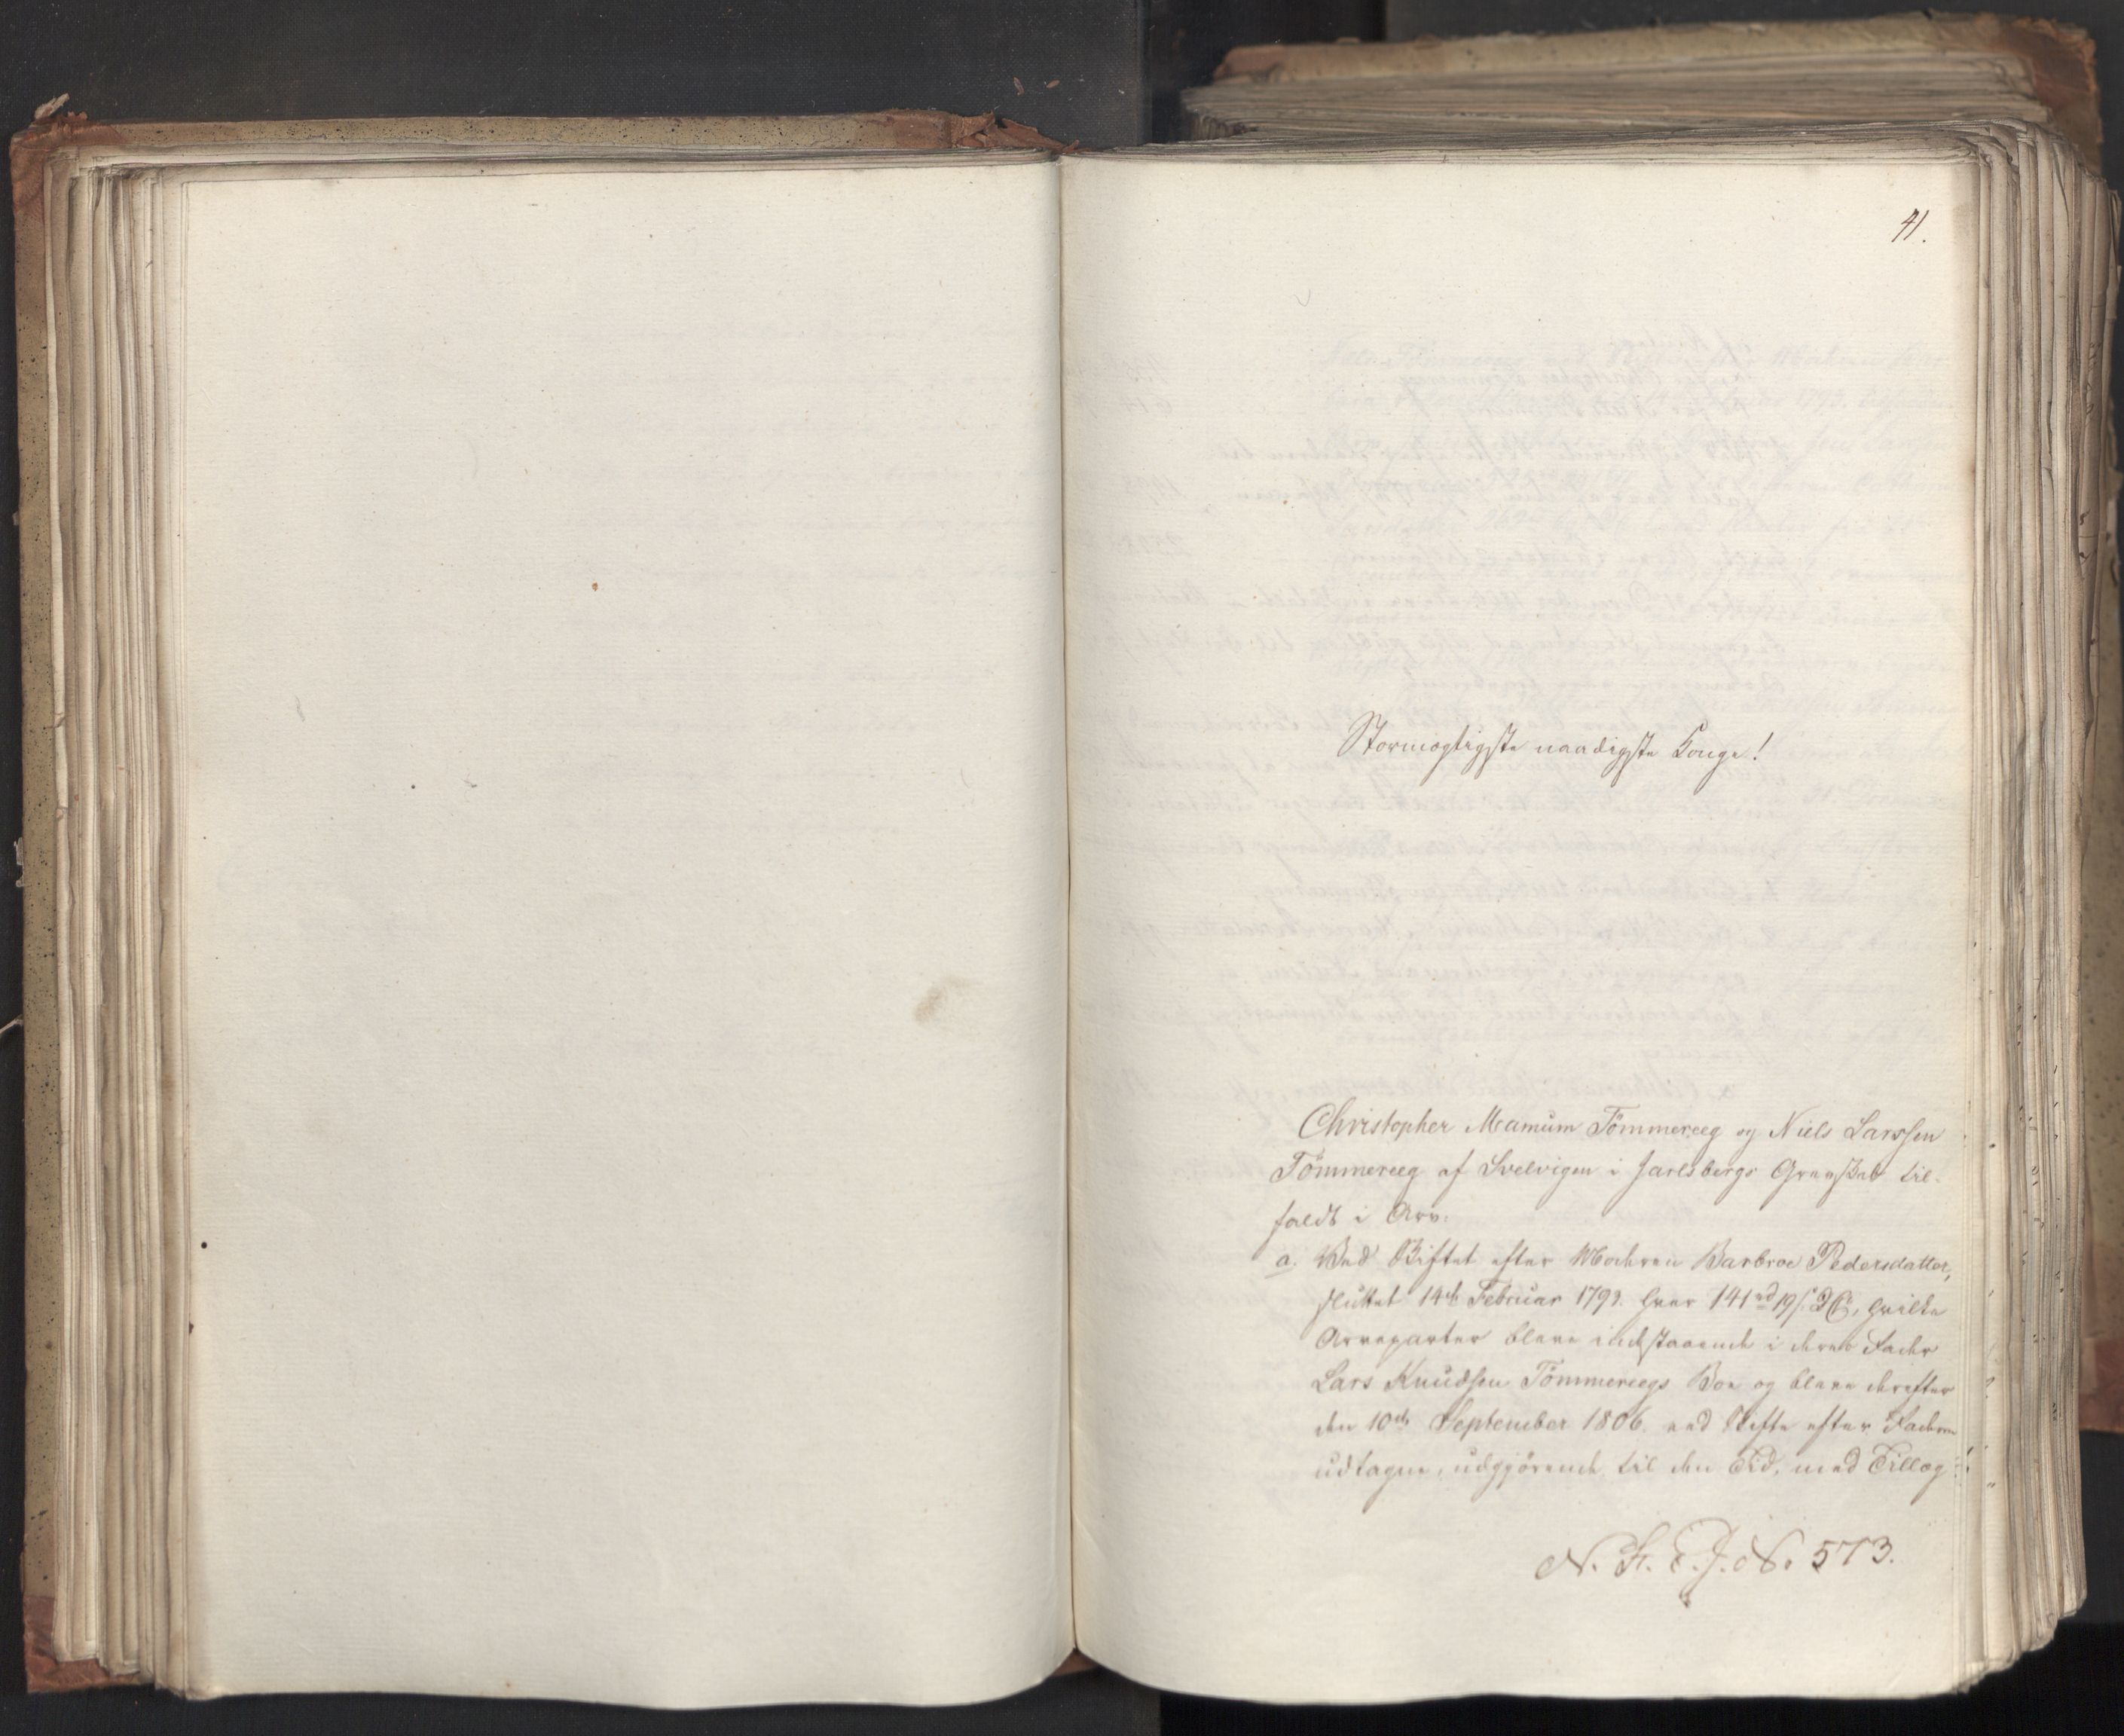 41.
Stormægtigste naadigste Konge!
Christopher Mamum Tömmereeg og Niels Larssen
Tömmereeg af Svelvigen i Jarlsbergs Grevskab til-
faldt i Arv:
a. Ved Skiftet efter Moderen Barbroe Pedersdatter,
sluttet 14de Februar 1793. hver 141 rd 19 s. D.C., hvilke
Arveparter bleve indestaaende i deres Fader
Lars Knudsen Tömmereegs Boe og bleve derefter
den 10de September 1806. ved Skifte efter Faderen
udtagne, udgjörende til den Tid, med Tillæg
N. F. E. J. No 573.